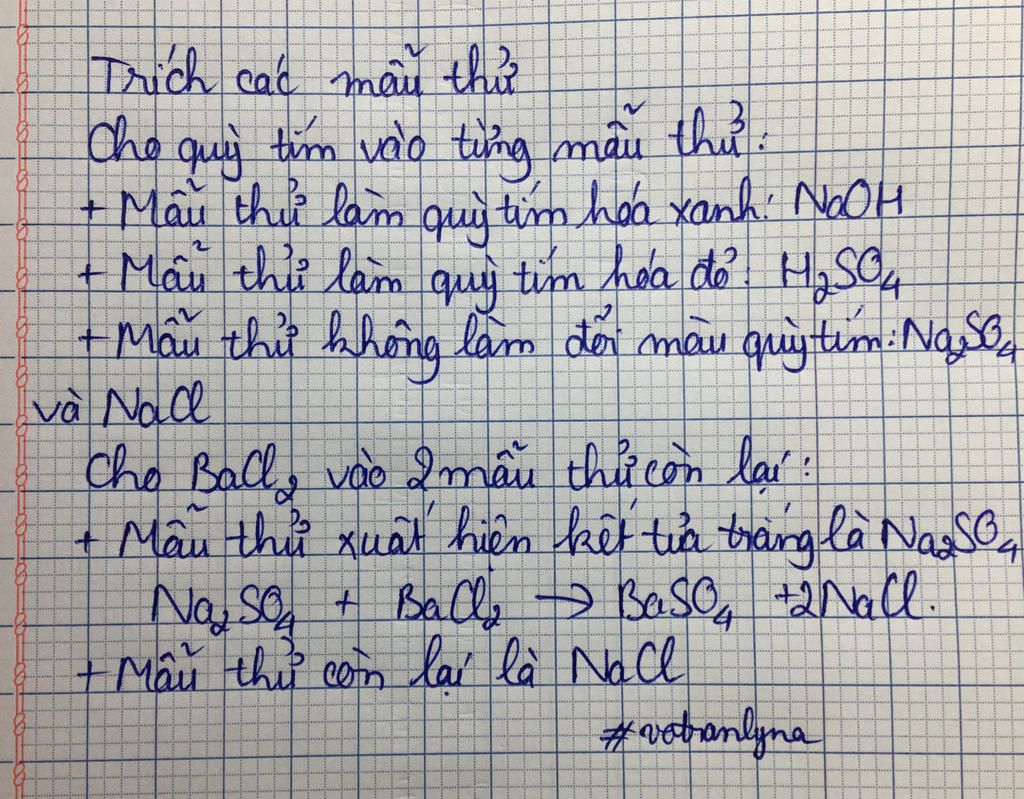 Trích các mẫu thử
Cho quỳ tím vào từng mẫu thử:
+ Mẫu thử làm quỳ tím hóa xanh: NaOH
+ Mẫu thử làm quỳ tím hóa đỏ: H₂SO₄
+ Mẫu thử không làm đổi màu quỳ tím: Na₂SO₄
và NaCl
Cho BaCl₂ vào 2 mẫu thử còn lại:
+ Mẫu thử xuất hiện kết tủa trắng là Na₂SO₄
Na₂SO₄ + BaCl₂ → BaSO₄ +2NaCl.
+ Mẫu thử còn lại là NaCl
#votranlyna